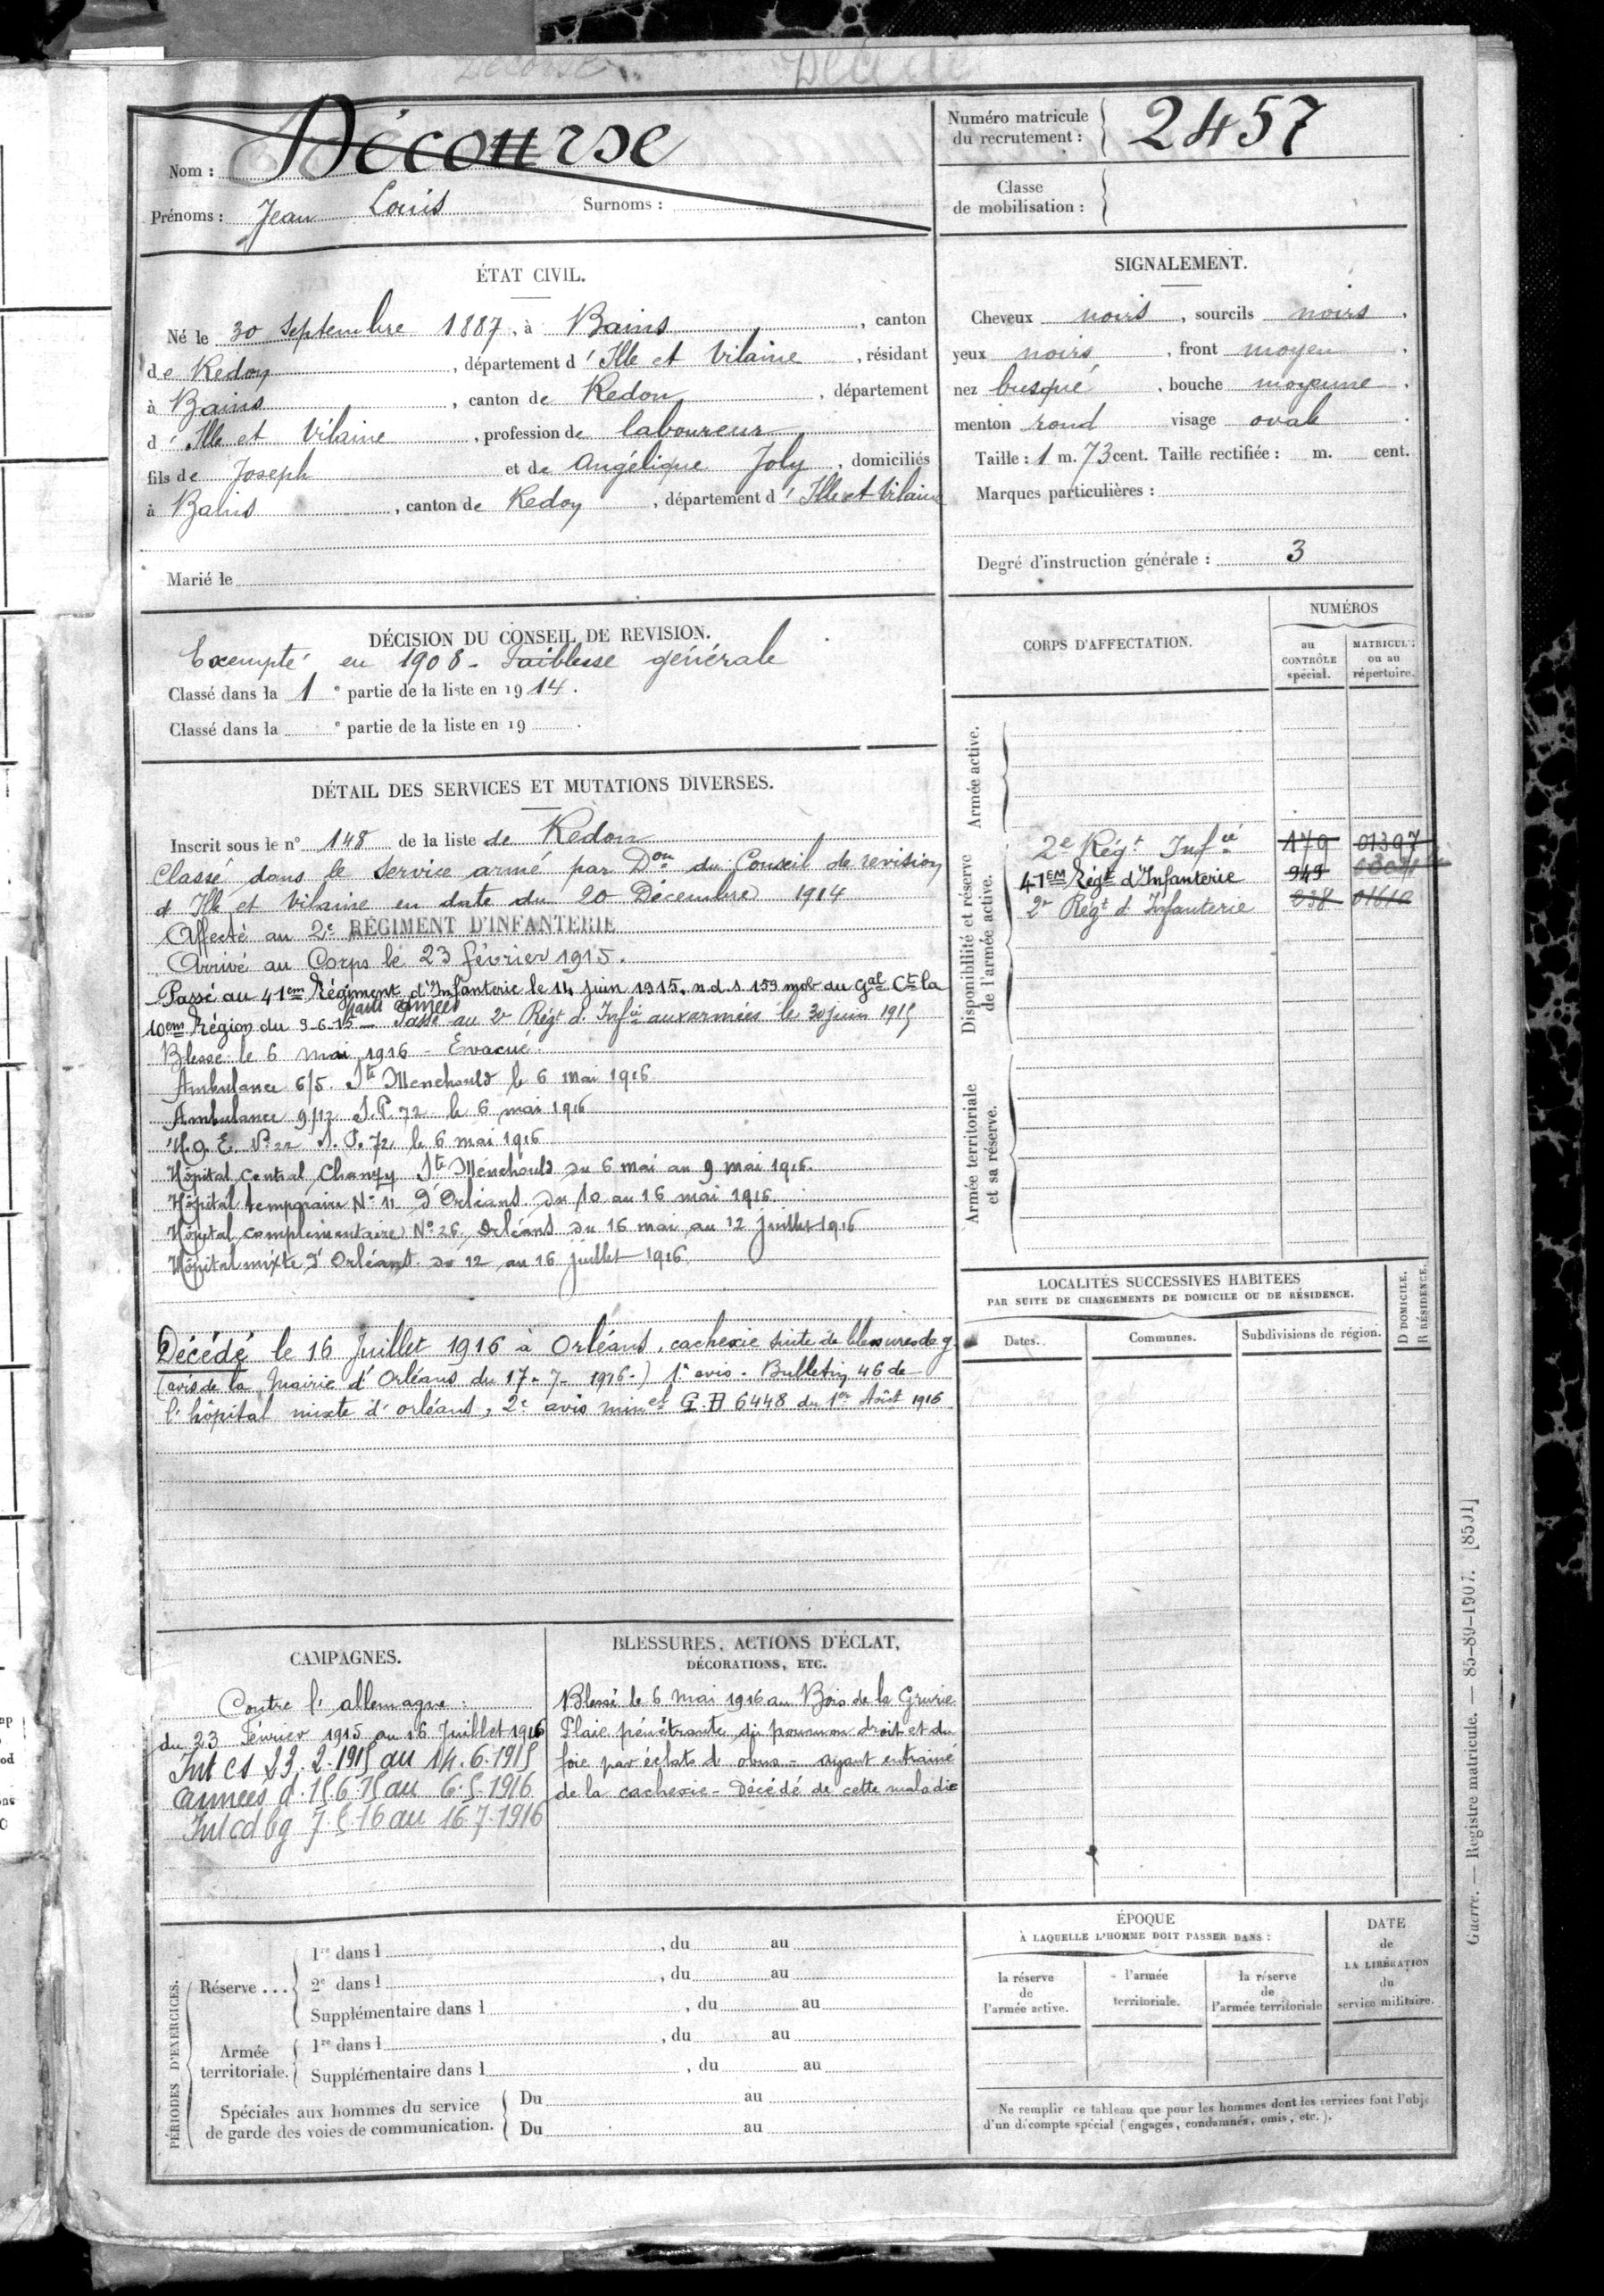 Décédé
Nom : Décourse
Prénoms : Jean Louis Surnoms :
Numéro matricule
du recrutement : 2457
Classe
de mobilisation :
ÉTAT CIVIL.
Né le 30 septembre 1887, à Bains, canton
de Redon, département d'Ille et Vilaine, résidant
à Bains, canton de Redon, département
d'Ille et Vilaine, profession de laboureur
fils de Joseph et de Angélique Joly, domiciliés
à Bains, canton de Redon, département d'Ille et Vilaine
Marié le
SIGNALEMENT.
Cheveux noirs, sourcils noirs,
yeux noirs, front moyen,
nez busqué, bouche moyenne,
menton rond visage ovale.
Taille : 1 m. 73 cent. Taille rectifiée : m. cent.
Marques particulières :
Degré d'instruction générale : 3
DÉCISION DU CONSEIL DE REVISION.
Exempté en 1908 - Faiblesse générale
Classé dans la 1e partie de la liste en 1914.
Classé dans la e partie de la liste en 19 .
DÉTAIL DES SERVICES ET MUTATIONS DIVERSES.
Inscrit sous le n° 148 de la liste de Redon
Classé dans le service armé par Don du Conseil de revision
d'Ille et Vilaine en date du 20 Décembre 1914
Affecté au 2e RÉGIMENT D'INFANTERIE
Arrivé au Corps le 23 février 1915.
Passé au 41em Régiment d'Infanterie le 14 juin 1915. n.d.s 159 mob du Gal Ct la
10em Région du 9-6-15 - Passé au 2e Régt d'Infie aux armées le 30 juin 1915
Blessé le 6 mai 1916 - Evacué.
Ambulance 6/5. Ste Menehould le 6 mai 1916
Ambulance 9/12 S.P. 72 le 6 mai 1916
H.O.E. N° 22 S.P. 72, le 6 mai 1916
Hôpital Central Chanzy Ste Ménehould du 6 mai au 9 mai 1916.
Hôpital temporaire N° 11 d'Orléans du 10 au 16 mai 1916.
Hôpital complémentaire N° 26, Orléans du 16 mai au 12 juillet 1916
Hôpital mixte d'Orléans. du 12 au 16 juillet 1916
Décédé le 16 Juillet 1916 à Orléans, cachexie suite de blessures de g
(avis de la Mairie d'Orléans du 17-7-1916-) 1er avis - Bulletin 46 de
l'hôpital mixte d'orléans, 2e avis minel G.B 6448 du 1er Août 1916
CORPS D'AFFECTATION.
NUMÉROS
au
CONTRÔLE
spécial.
MATRICULE
ou au
répertoire.
Armée active.
Disponibilité et réserve
de l'armée active.
2e Régt Infie 179 01397
41EM Régt d'Infanterie 949
2e Régt d'Infanterie 038 01610
Armée territoriale
et sa réserve.
LOCALITÉS SUCCESSIVES HABITÉES
PAR SUITE DE CHANGEMENTS DE DOMICILE OU DE RÉSIDENCE.
Dates. Communes. Subdivisions de région.
D DOMICILE.
R RÉSIDENCE.
CAMPAGNES.
Contre l'allemagne :
du 23 Février 1915 au 16 Juillet 1916
Int cs 23.2.1915 au 14.6.1915
armées d. 15.6.15 au 6.5.1916
Int cd bg 7.5.16 au 16.7.1916
BLESSURES, ACTIONS D'ÉCLAT,
DÉCORATIONS, ETC.
Blessé le 6 Mai 1916 au Bois de la Grurie
Plaie pénétrante du poumon droit et du
foie par éclats d'obus - ayant entrainé
de la cachexie - Décédé de cette maladie
PÉRIODES D'EXERCICES.
Réserve ...
1re dans l , du au
2e dans l , du au
Supplémentaire dans l , du au
Armée
territoriale.
1re dans l , du au
Supplémentaire dans l , du au
Spéciales aux hommes du service
de garde des voies de communication.
Du au
Du au
ÉPOQUE
À LAQUELLE L'HOMME DOIT PASSER DANS :
la réserve
de
l'armée active.
l'armée
territoriale.
la réserve
de
l'armée territoriale
DATE
de
LA LIBÉRATION
du
service militaire.
Ne remplir ce tableau que pour les hommes dont les services font l'obje
d'un décompte spécial (engagés, condamnés, omis, etc.).
Guerre. — Registre matricule. — 85-89-1907. [8501]